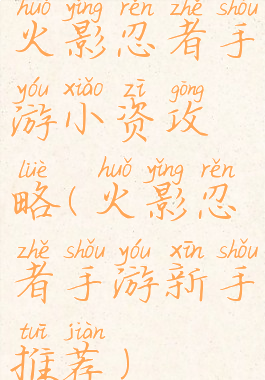 huǒ yǐng rěn zhě shǒu
火影忍者手
yóu xiǎo zī gōng
游小资攻
lüè huǒ yǐng rěn
略(火影忍
zhě shǒu yóu xīn shǒu
者手游新手
tuī jiàn
推荐)